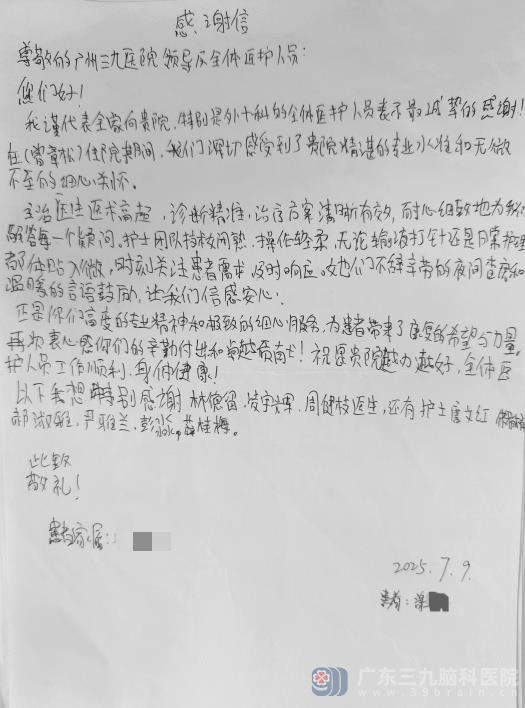 感谢信
尊敬的广州三九医院领导及全体医护人员:
您们好!
我谨代表全家向贵院,特别是外十科的全体医护人员表示最诚挚的感谢!
在(曾章松)住院期间,我们深切感受到了贵院精湛的专业水准和无微
不至的细心关怀。
主治医生医术高超,诊断精准,治疗方案清晰有效,耐心细致地为我们
解答每一个疑问。护士团队技术闲熟、操作轻柔,无论输液打针还是日常护理
都体贴入微,时刻关注患者需求及时响应。她们不辞辛劳的夜间查房和
温暖的言语鼓励,让我们倍感安心。
正是你们高度的专业精神和极致的细心服务,为患者带来了康复的希望与力量,
再次衷心感你们的辛勤付出和卓越贡献!祝愿贵院越办越好,全体医
护人员工作顺利,身体健康!
以下我想特别感谢林德留,凌宇辉,周健枝医生,还有护士唐文红
郝淑胜,严雅兰,彭淼,薛桂梅。
此致
敬礼!
患者家属:
2025.7.9.
患者:
广东三九脑科医院
www.39brain.cn